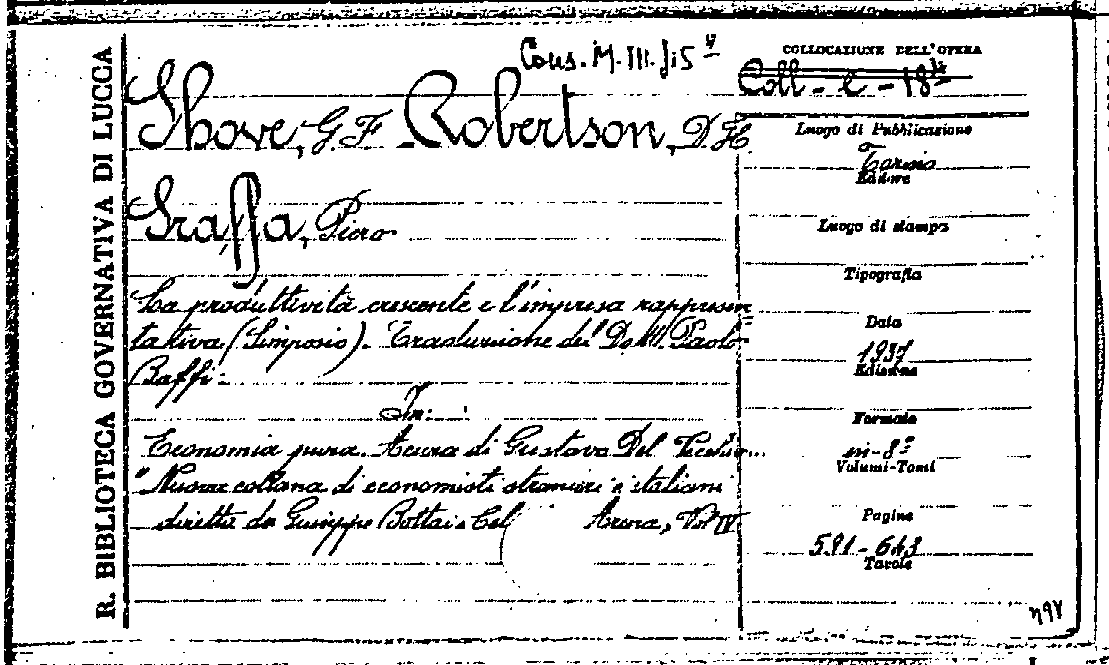 R. BIBLIOTECA GOVERNATIVA DI LUCCA
Cons. M. III. 515 4
Shove, G. F. Robertson, D. H.
Sraffa, Piero
La produttività crescente e l'impresa rappresen
tativa (Simposio). Traduzione del Dott. Paolo
Baffi.
In:
Economia pura. A cura di Gustavo Del Vecchio...
"Nuova collana di economisti stranieri e italiani
diretta da Giuseppe Bottai e Cel Arena, Vol IV
COLLOCAZIONE DELL'OPERA
Coll - C - 18
Luogo di Pubblicazione
Torino
Editore
Luogo di stampa
Tipografia
Data
1937
Edizione
Formato
in-8°
Volumi-Tomi
Pagine
591-643
Tavole